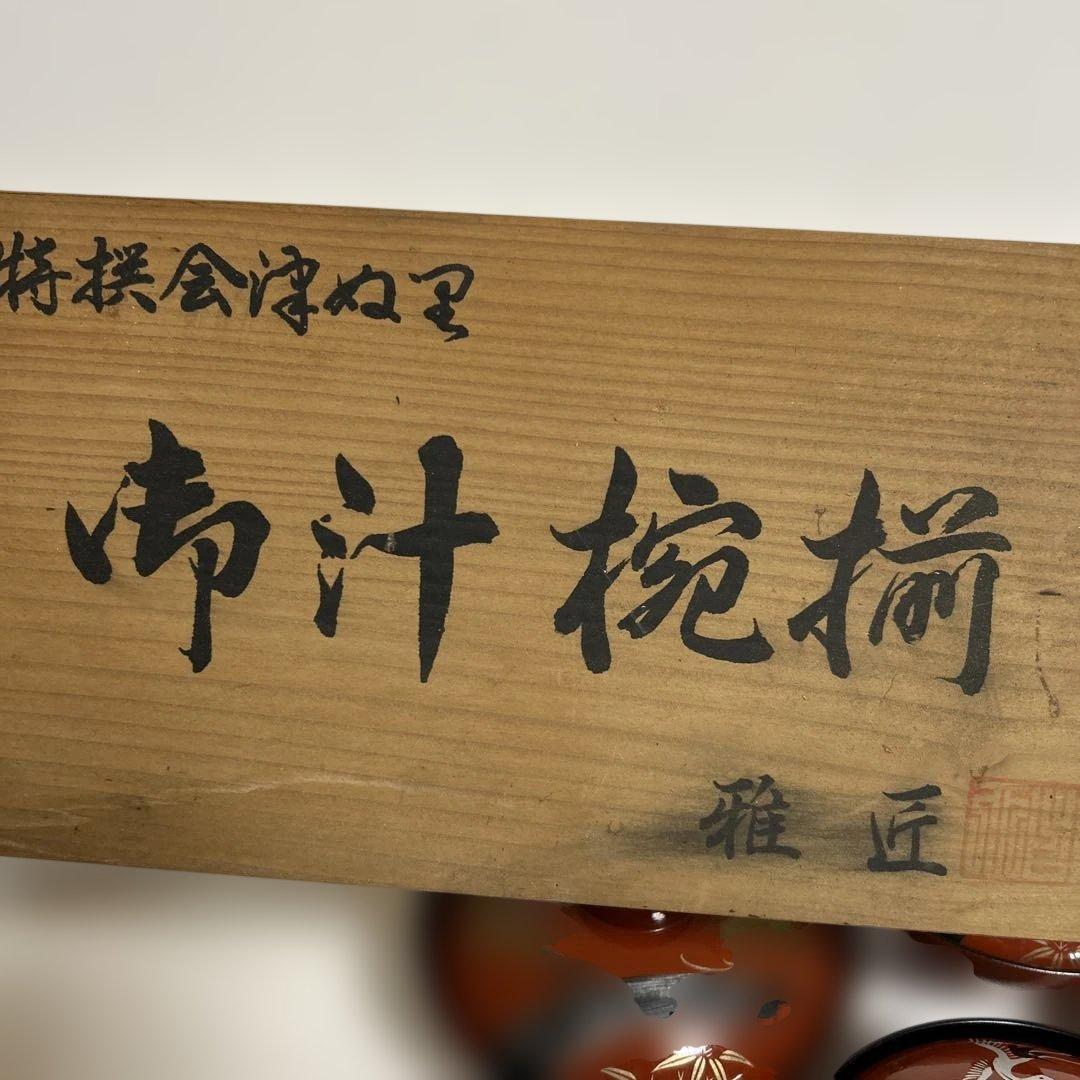 特撰会津ぬ里
御汁椀揃
雅匠